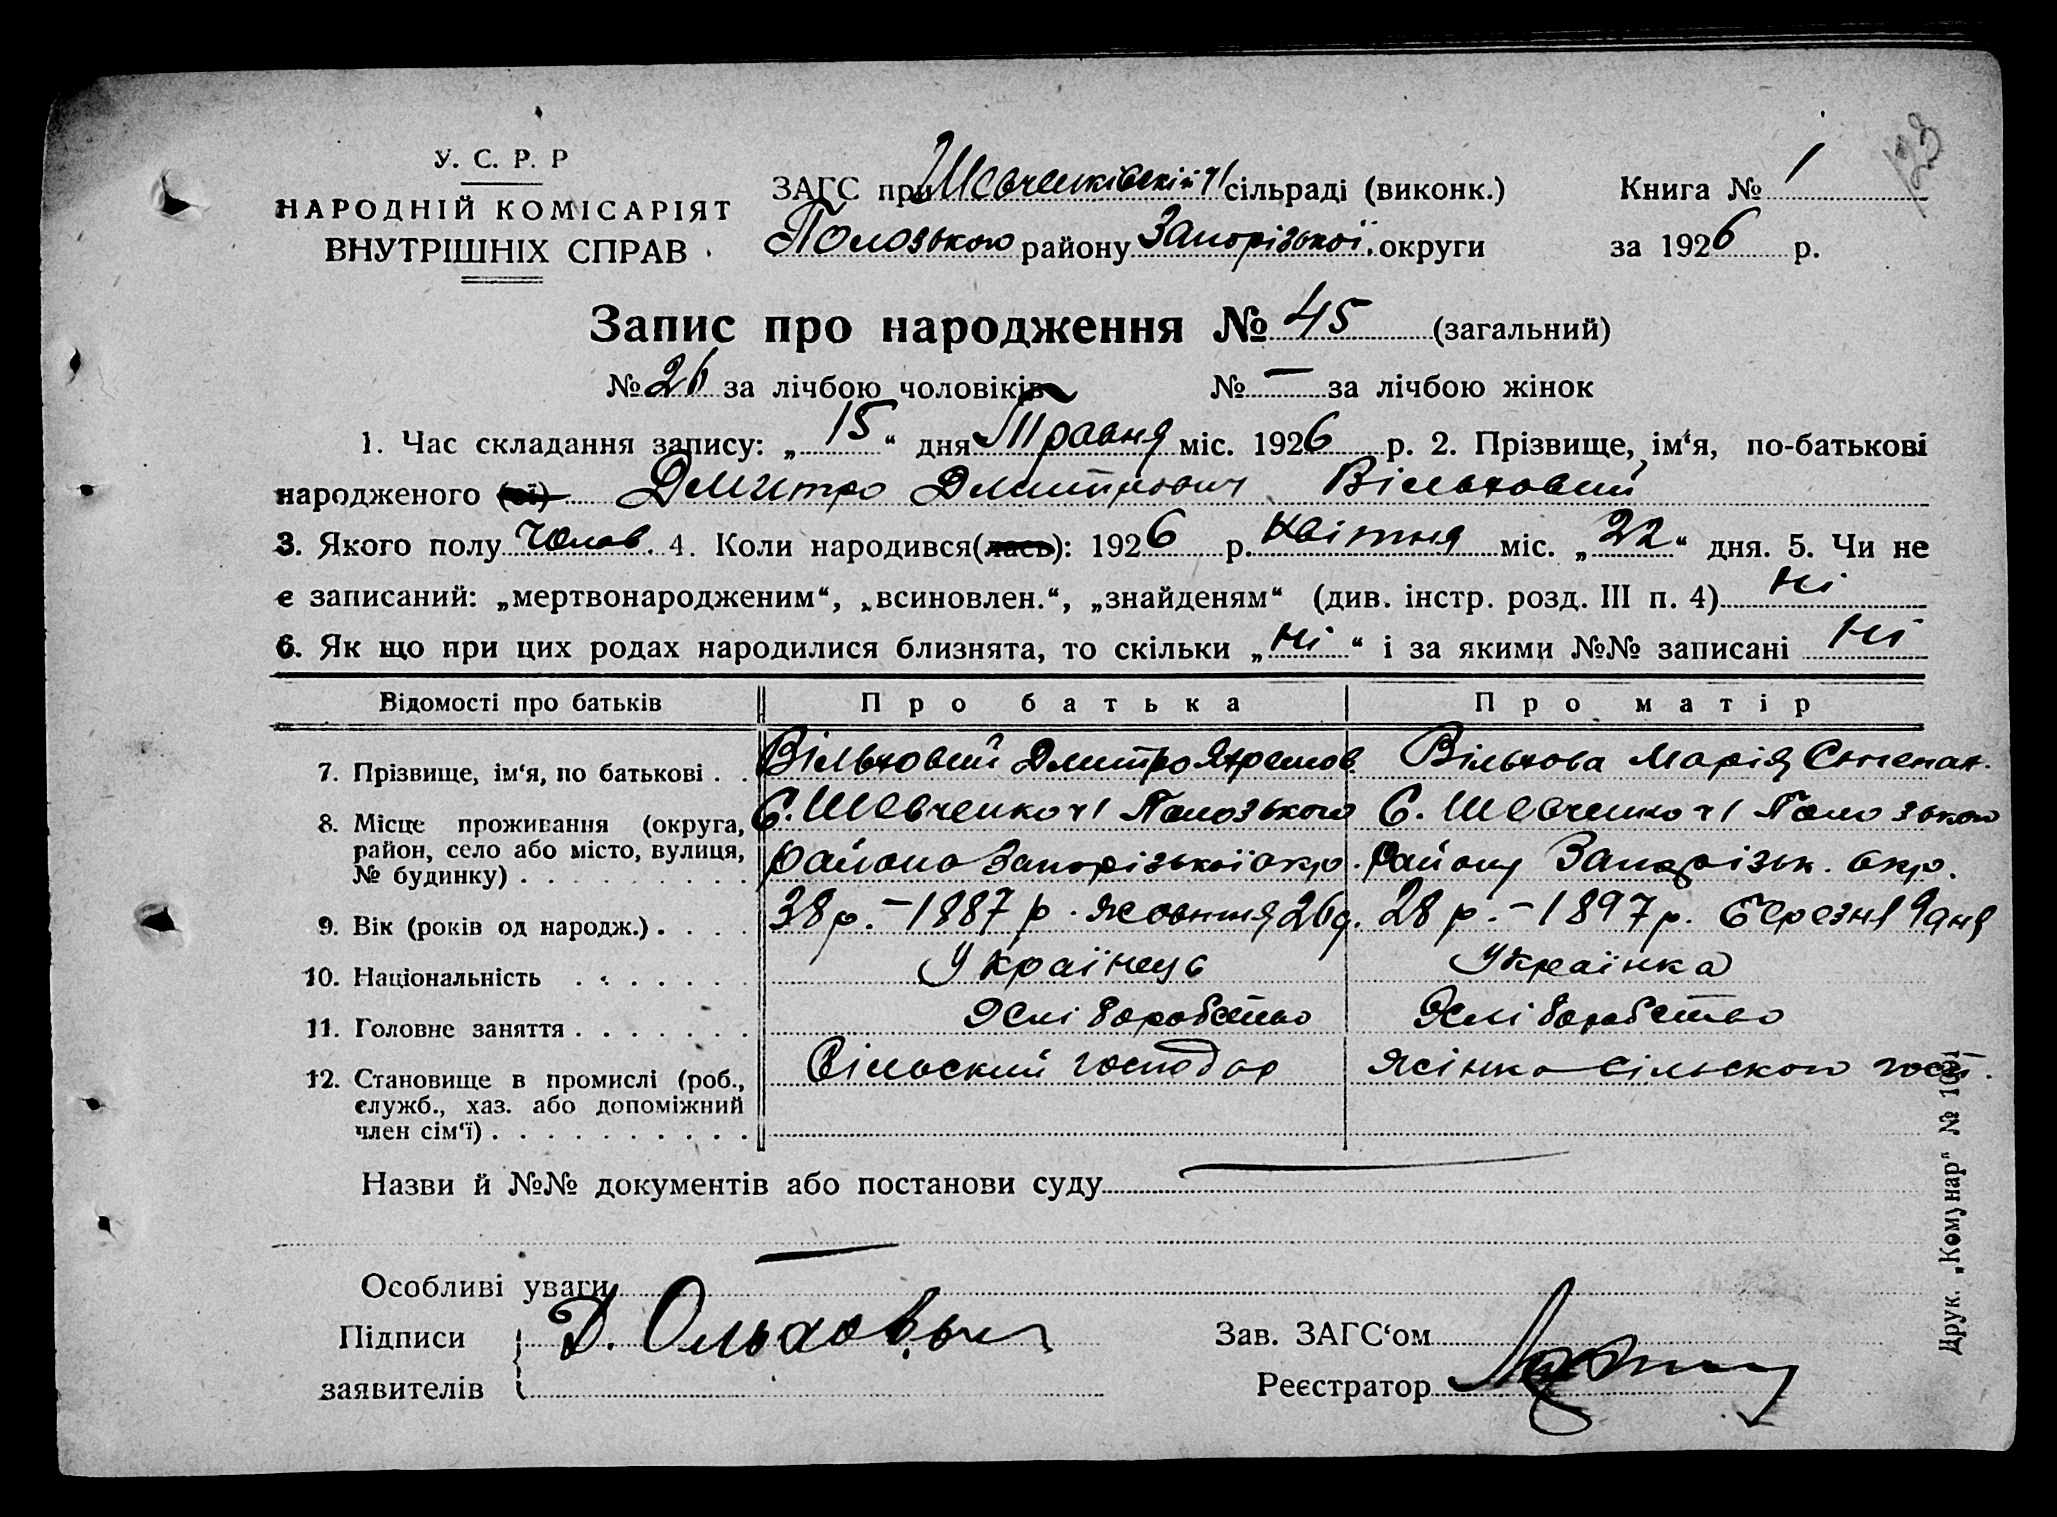 123
У. С. Р. Р
НАРОДНІЙ КОМІСАРІЯТ
ВНУТРІШНІХ СПРАВ
ЗАГС при Шевченківскій ч1 сільраді (виконк.) Книга № 1
Полозького району Запорізької округи за 1926 р.
Запис про народження № 45 (загальний)
№ 26 за лічбою чоловіків № — за лічбою жінок
1. Час складання запису: „15“ дня Травня міс. 1926 р. 2. Прізвище, ім‘я, по-батькові
народженого (ої) Дмитро Дмитрович Вільховий
3. Якого полу Чолов. 4. Коли народився(лась): 1926 р. Квітня міс. „22“ дня. 5. Чи не
є записаний: „мертвонародженим“, „всиновлен.“, „знайденям“ (див. інстр. розд. III п. 4) Ні
6. Як що при цих родах народилися близнята, то скільки „Ні“ і за якими №№ записані Ні
Відомості про батьків Про батька Про матір
7. Прізвище, ім‘я, по батькові . . Вільховий Дмитро Яхремов. Вільхова Марія Степан.
8. Місце проживання (округа, район, село або місто, вулиця, № будинку) . . . . . . . . .
С. Шевченко ч1 Полозького С. Шевченко ч1 Полозького
района Запорізької окр. Району Запорізьк. окр.
9. Вік (років од народж.) . . . . 38 р. – 1887 р. жовтня 26 д. 28 р. – 1897 р. березня 9 дня
10. Національність . . . . . . . Українець Українка
11. Головне заняття . . . . . . . Хліборобство Хліборобство
12. Становище в промислі (роб., служб., хаз. або допоміжний член сім‘ї) . . . . . . . . . .
Сільский господар жінка сільского госп.
Назви й №№ документів або постанови суду
Особливі уваги
Підписи
заявителів
Д. Ольховый
Зав. ЗАГС‘ом
Реєстратор
Друк. „Комунар“ №